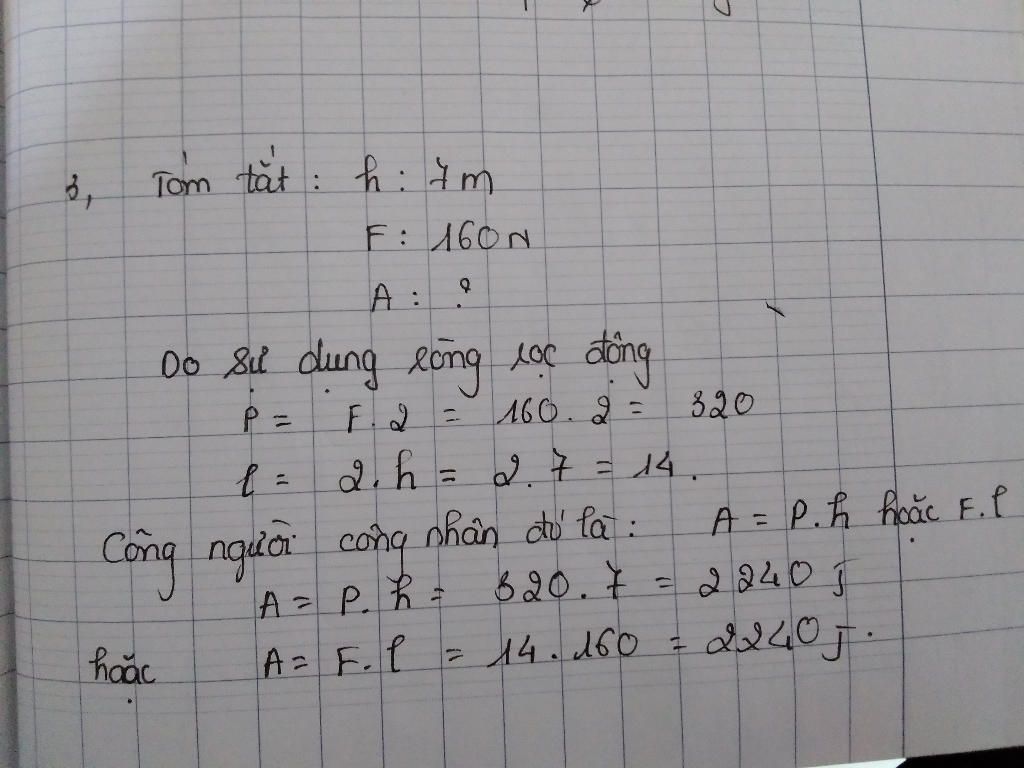 3, Tóm tắt : h : 7m
F : 160N
A : ?
Do sử dụng ròng rọc động
P = F.2 = 160.2 = 320
l = 2.h = 2.7 = 14.
Công người công nhân đó là : A = P.h hoặc F.l
A = P.h = 320.7 = 2240 J
hoặc A = F.l = 14.160 = 2240 J.